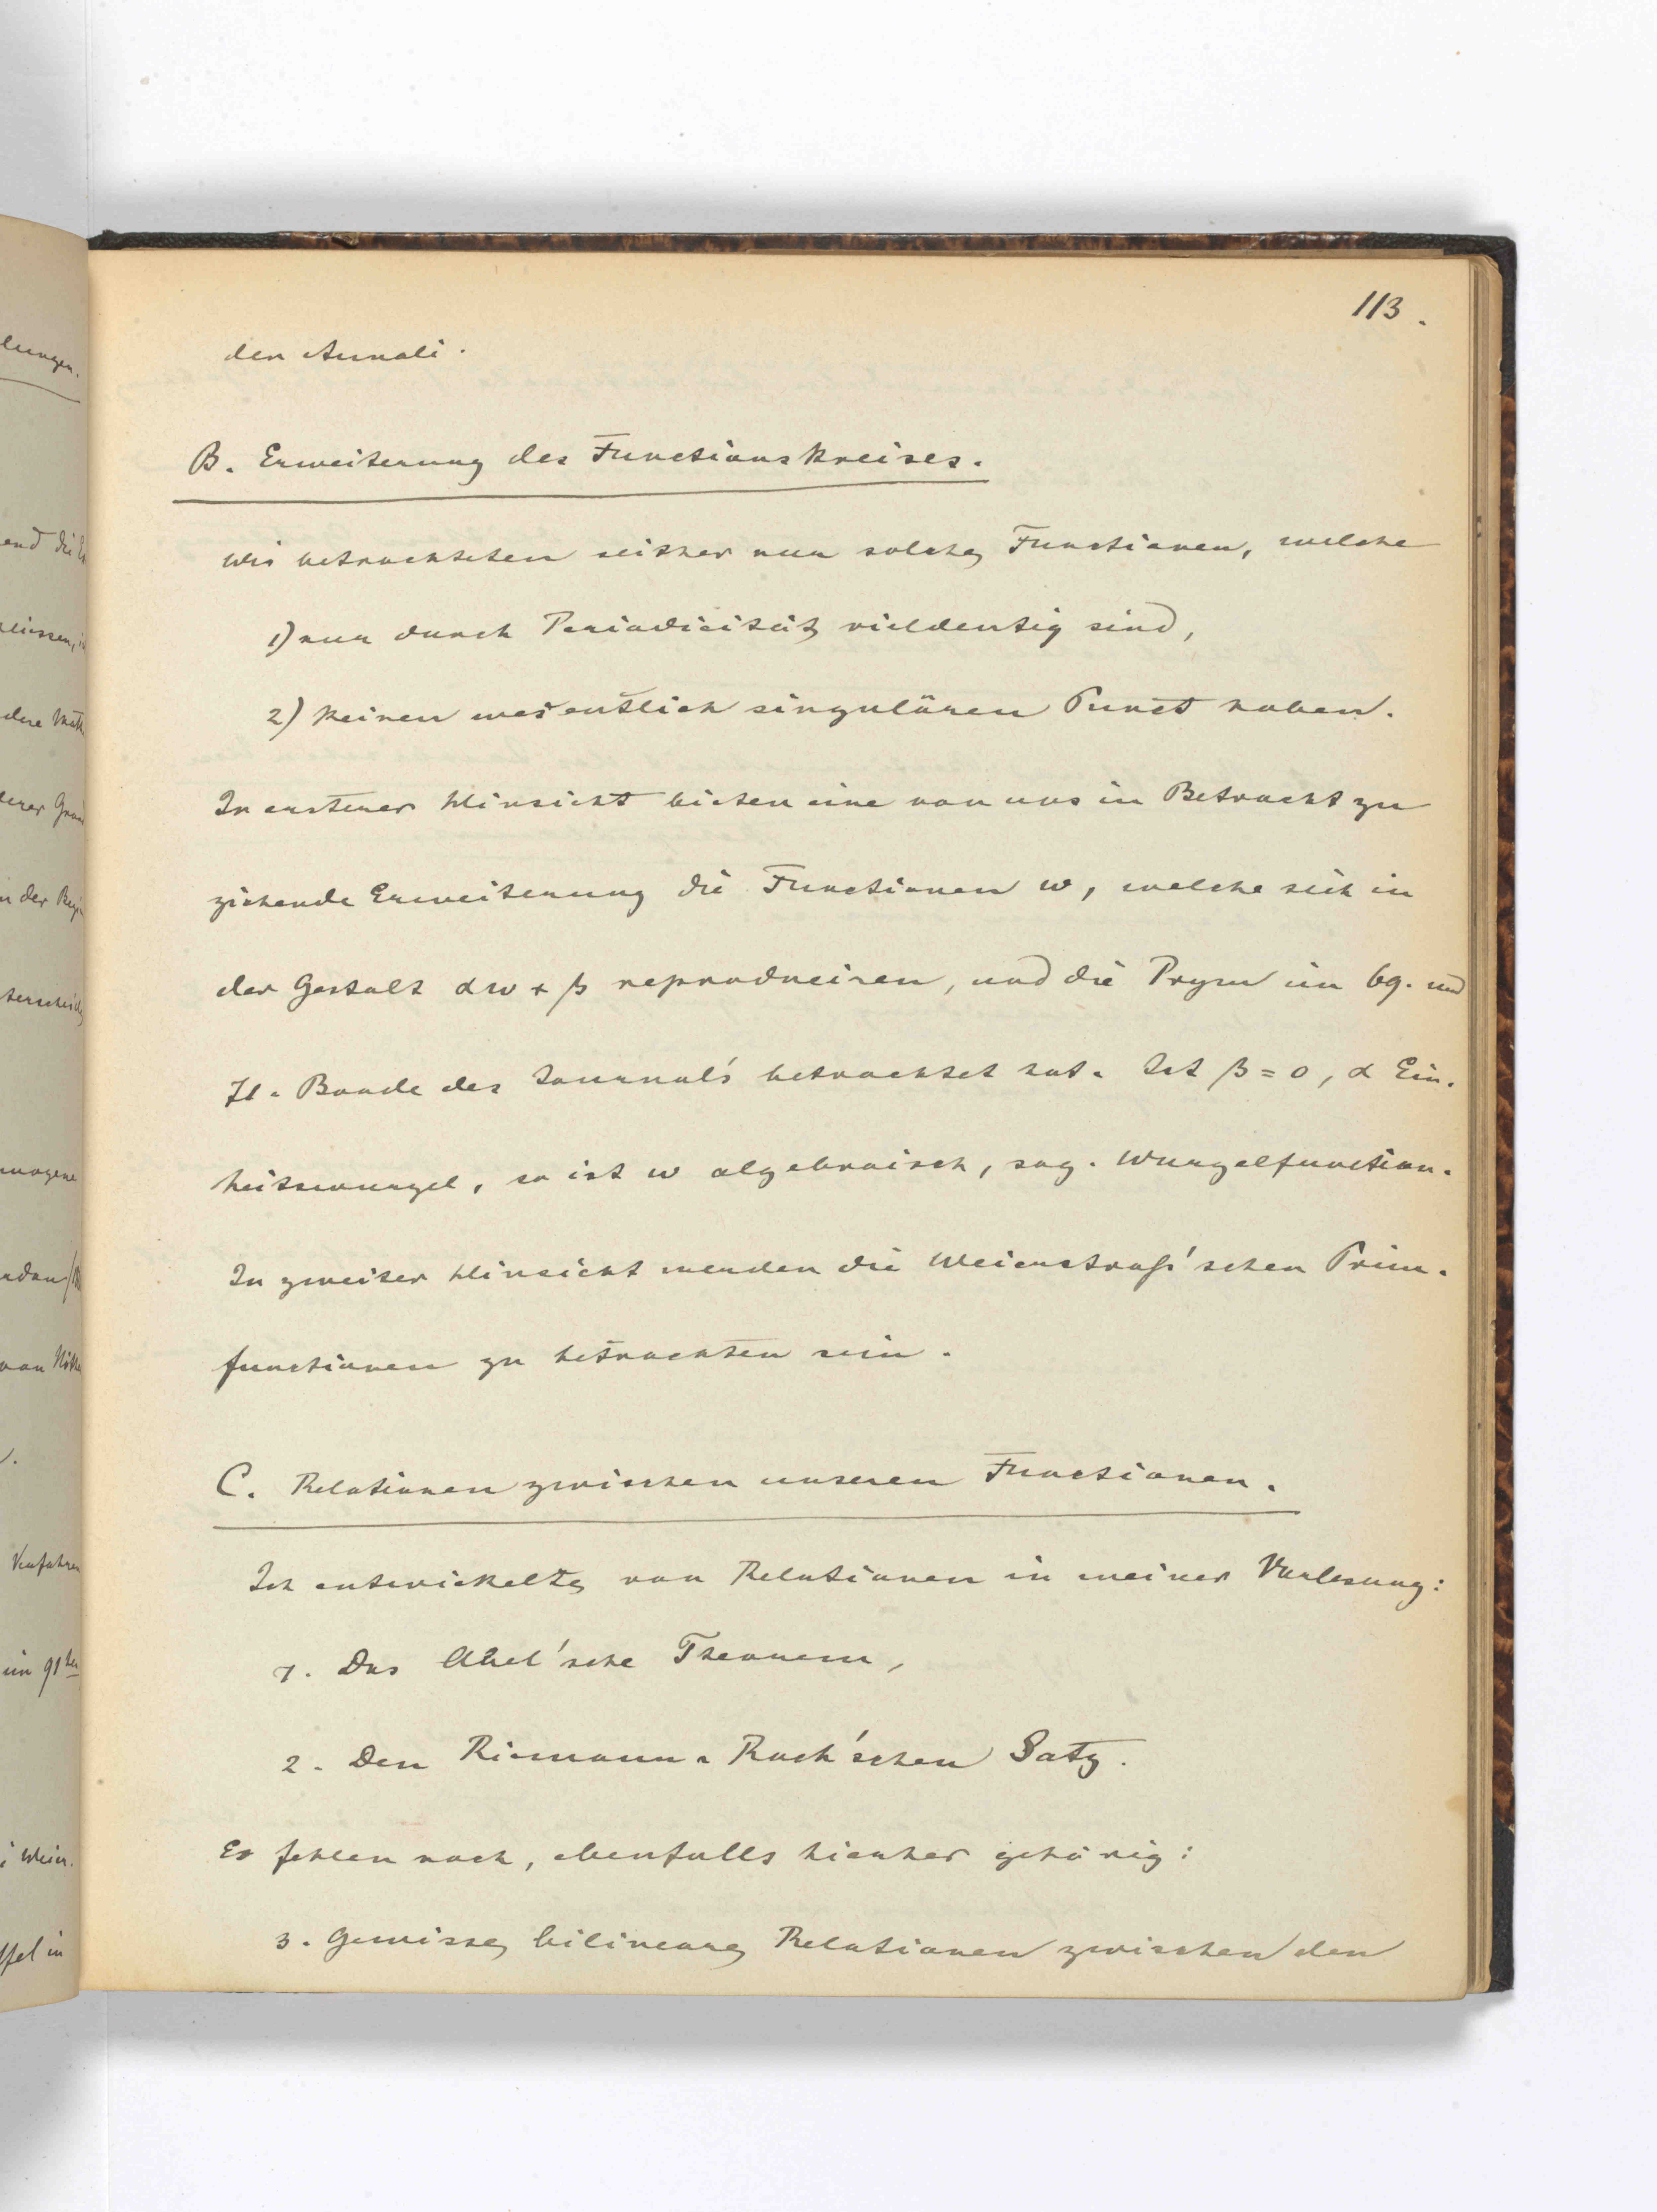 113.
der Annali.
B. Erweiterung des Functionskreises.
Wir betrachteten seither nur solche Functionen, welche
1) nur durch Periodicität vieldeutig sind,
2) keinen wesentlich singulären Punct haben.
In ersterer Hinsicht bieten eine von uns in Betracht zu
ziehende Erweiterung die Functionen w, welche sich in
der Gestalt αw + β reproduciren, und die Prym im 69. und
71. Bande des Journal's betrachtet hat. Ist β = 0, α Ein-
heitswurzel, so ist w algebraisch, sog. Wurzelfunction.
In zweiter Hinsicht werden die Weierstraß'schen Prim-
functionen zu betrachten sein.
C. Relationen zwischen unseren Functionen.
Ich entwickelte von Relationen in meiner Vorlesung:
1. Das Abel'sche Theorem,
2. Den Riemann-Roch'schen Satz.
Es fehlen noch, ebenfalls hierher gehörig:
3. Gewisse bilineare Relationen zwischen den